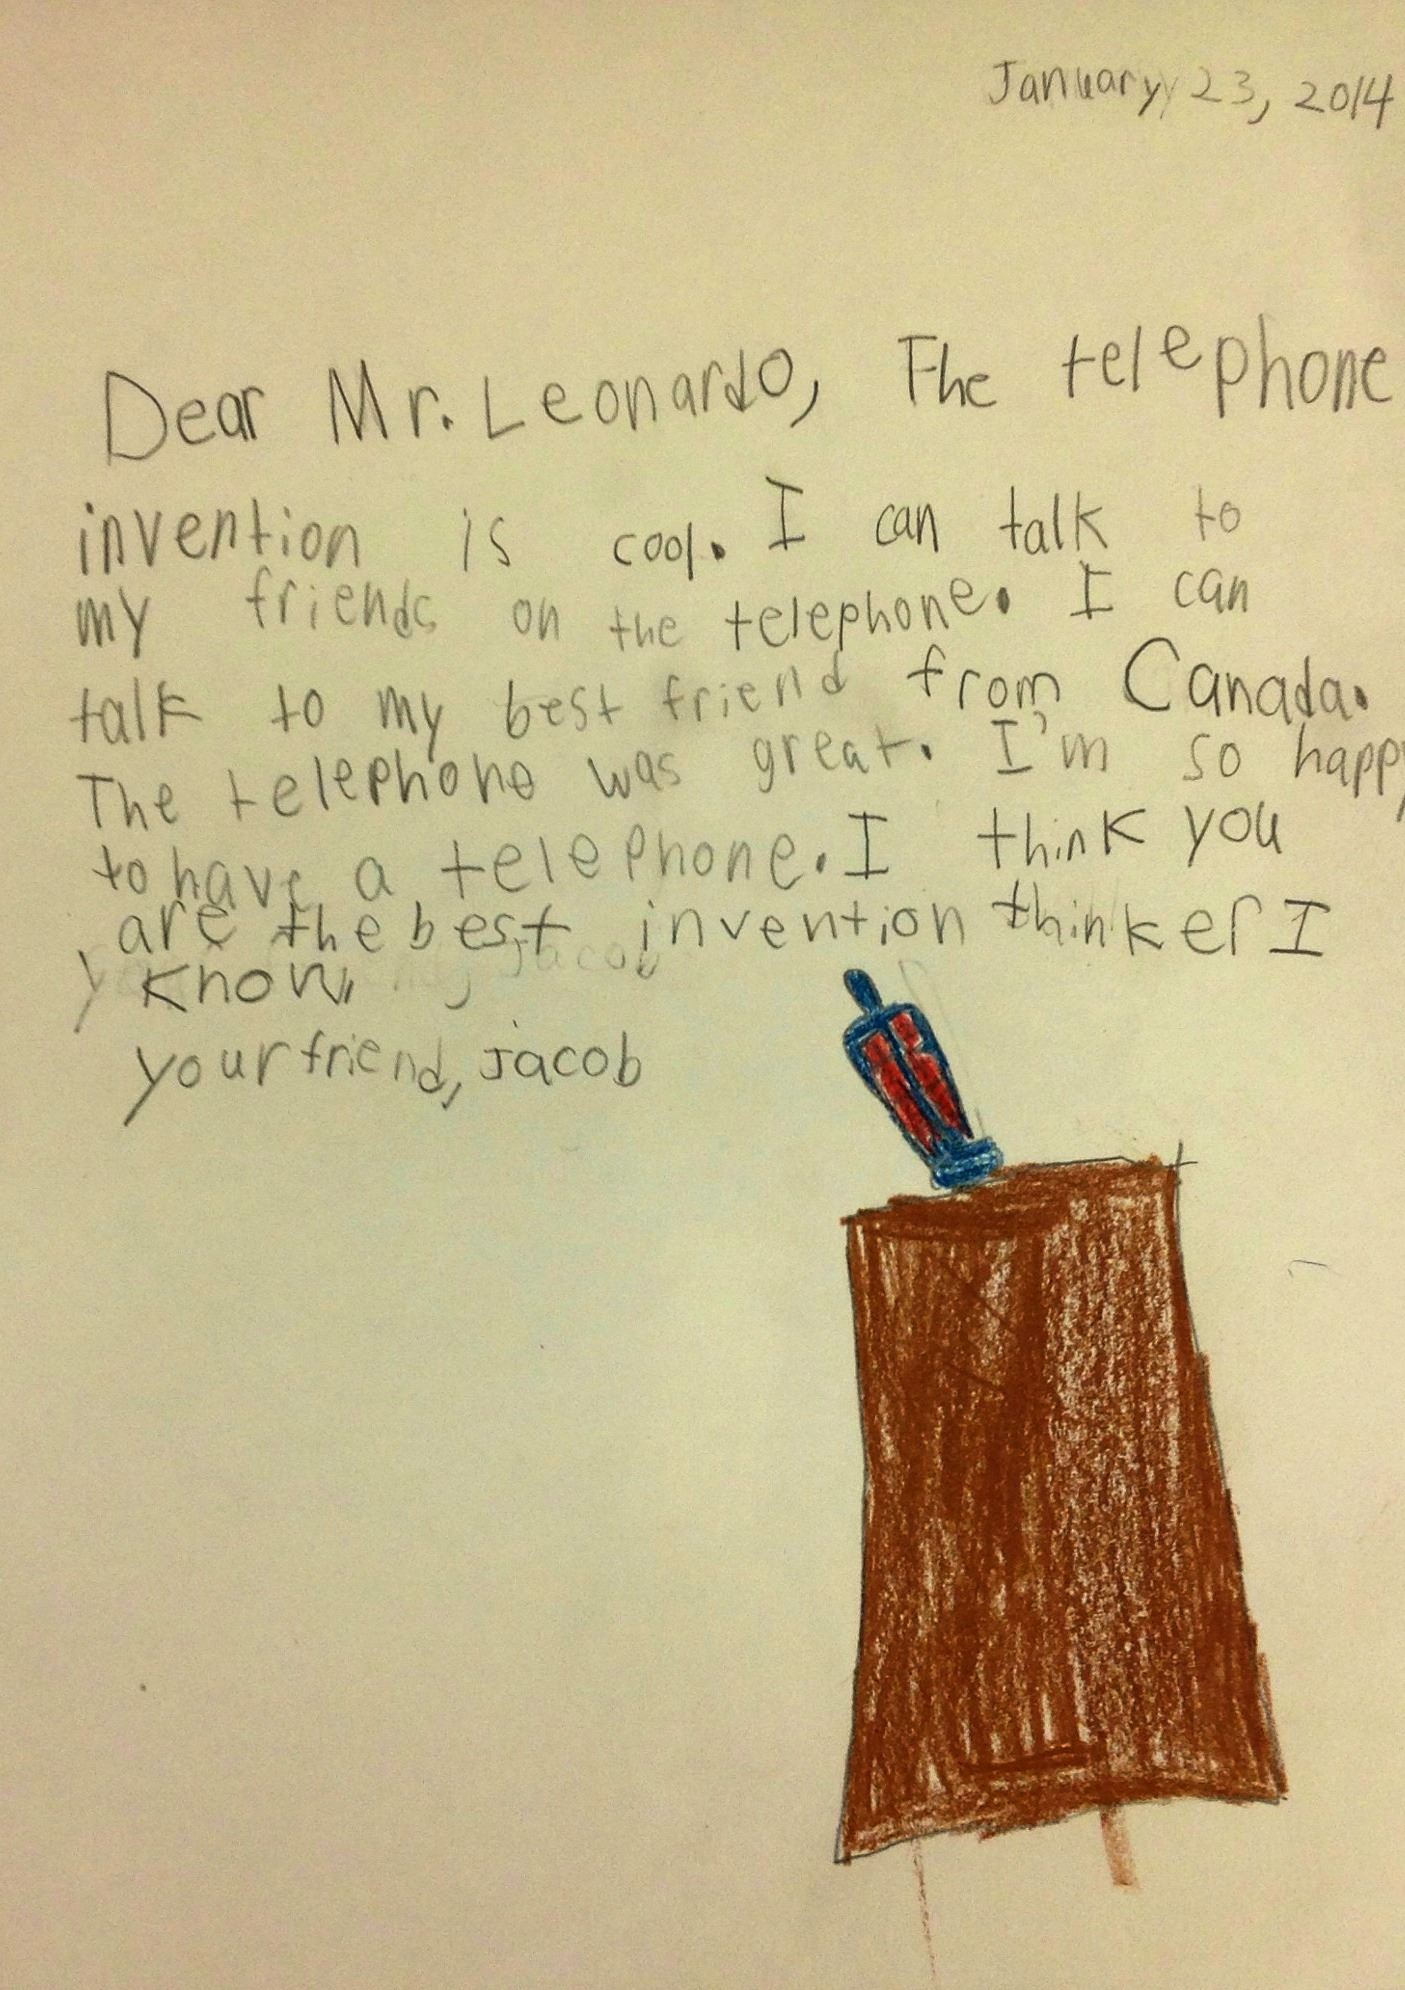 January 23, 2014
Dear Mr. Leonardo, The telephone
invention is cool. I can talk to
my friends on the telephone. I can
talk to my best friend from Canada.
The telephone was great. I'm so happy
to have a telephone. I think you
are the best invention thinker I
know.
your friend, Jacob